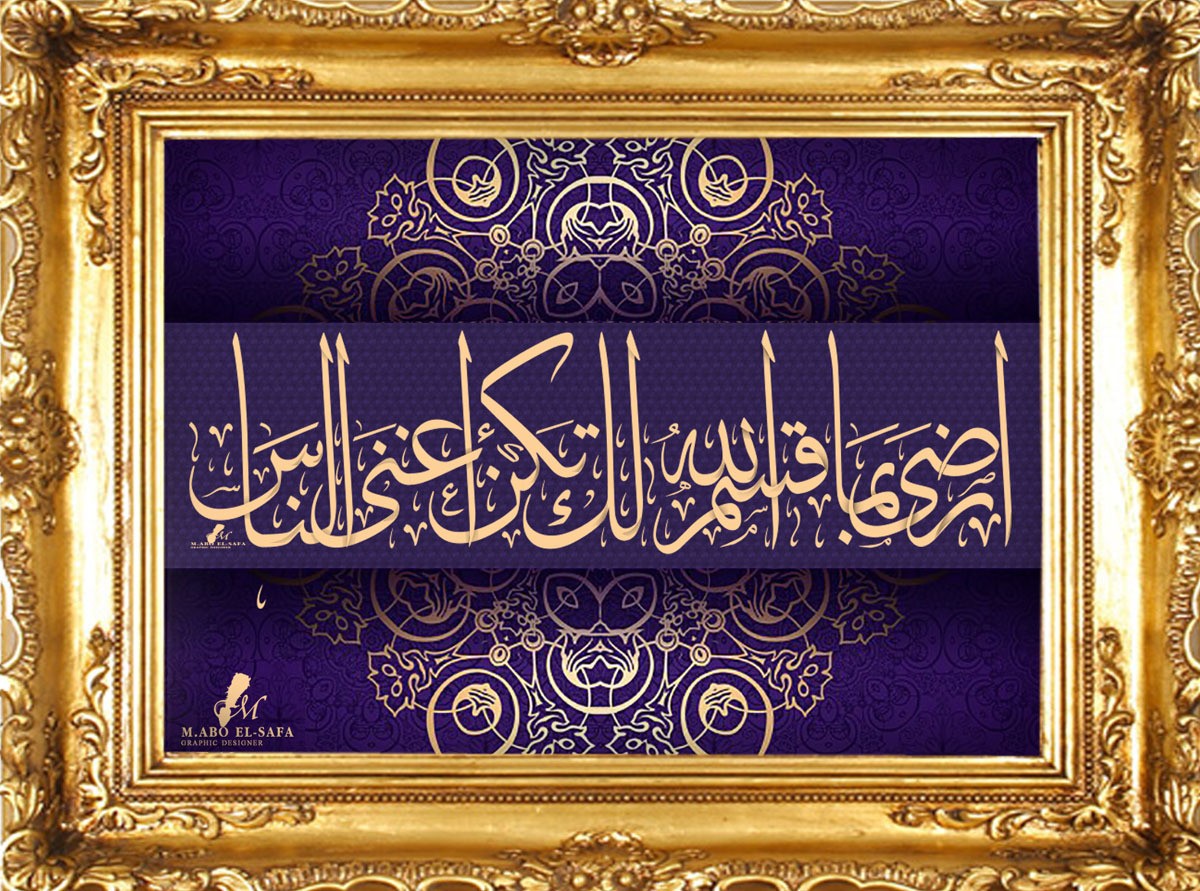 ارضى بما قسم الله لك تكن اغنى الناس
M.ABO EL-SAFA
GRAPHIC DESIGNER
M
M.ABO EL-SAFA
GRAPHIC DESIGNER